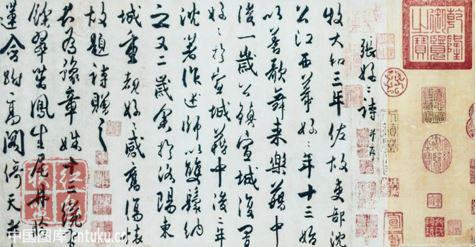 乾隆御覽之寶
張好好詩 并序
牧大和三年佐故吏部沈
公江西幕好好年十三始
以善歌舞來樂籍中
後一歲公鎮宣城復置
好好於宣城籍中後二年
沈著作述師以雙鬟納
之又二歲余於洛陽東
城重覩好好感舊傷懷
故題詩贈之
君為豫章姝十三纔有
餘翠茁鳳生尾丹葉
蓮含跗高閣倚天半
中国图库 cntuku.cn